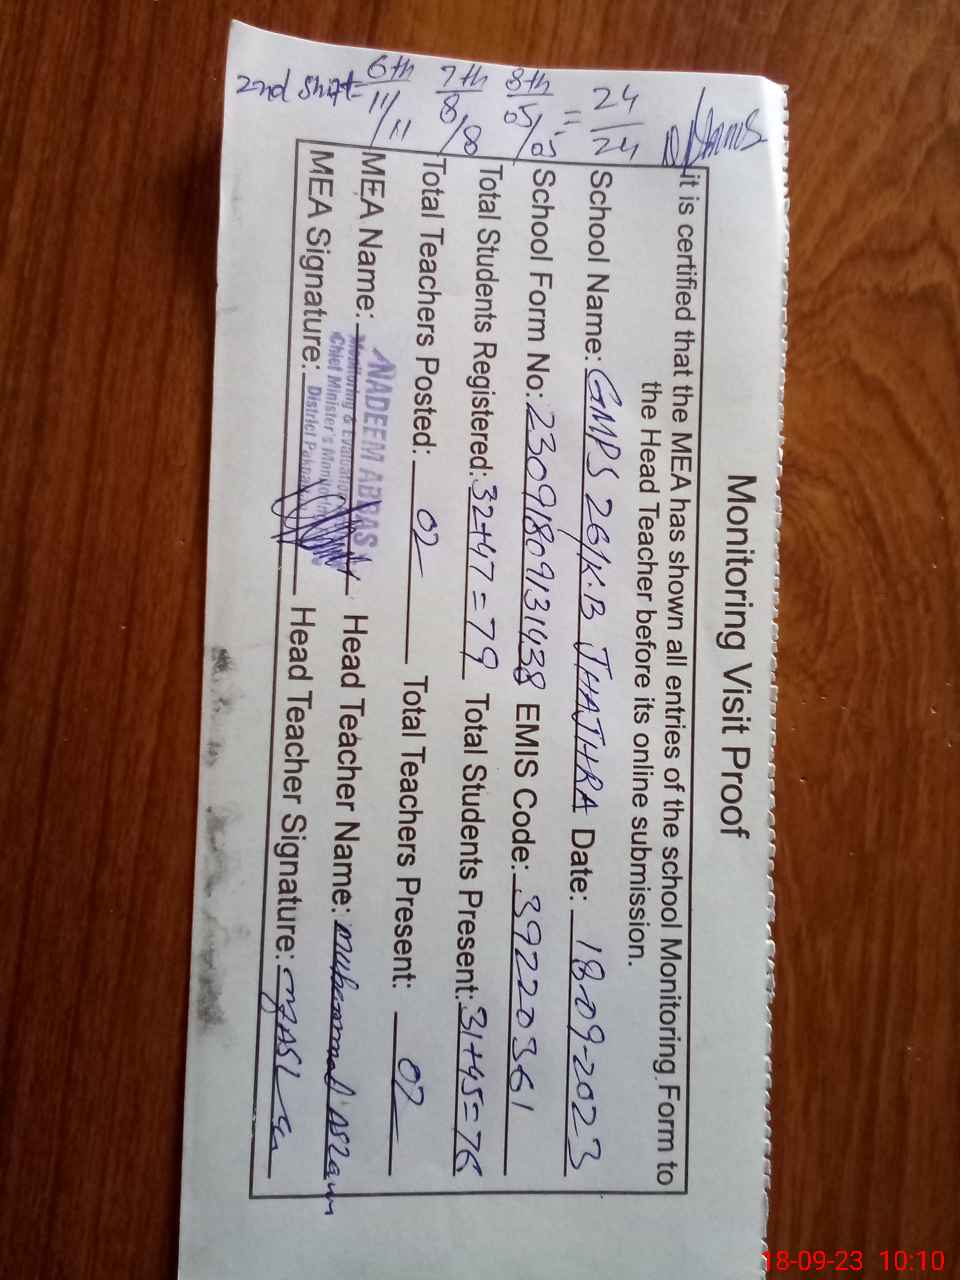 2nd shift- 6th 11/11 7th 8/8 8th 05/05 = 24/24
Monitoring Visit Proof
it is certified that the MEA has shown all entries of the school Monitoring Form to
the Head Teacher before its online submission.
School Name: GMPS 26/K.B JHAJHRA Date: 18-09-2023
School Form No: 23091809131438 EMIS Code: 39220361
Total Students Registered: 32+47=79 Total Students Present: 31+45=76
Total Teachers Posted: 02 Total Teachers Present: 02
MEA Name: NADEEM ABBAS Head Teacher Name: Muhammad Aslam
Monitoring & Evaluation
Chief Minister's Monitoring
MEA Signature: District Head Teacher Signature: MASLam
18-09-23 10:10